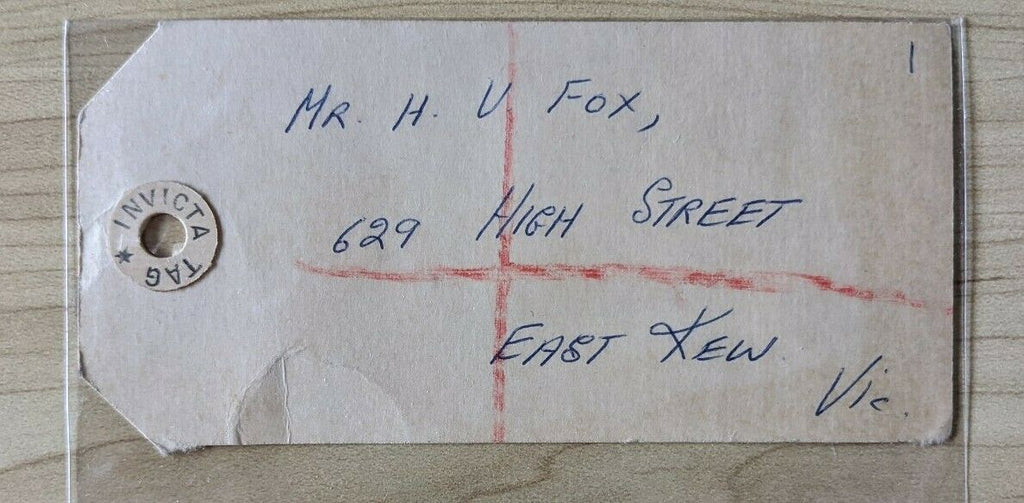 1
MR. H. V FOX,
629 HIGH STREET
EAST KEW.
Vic.
INVICTA TAG *